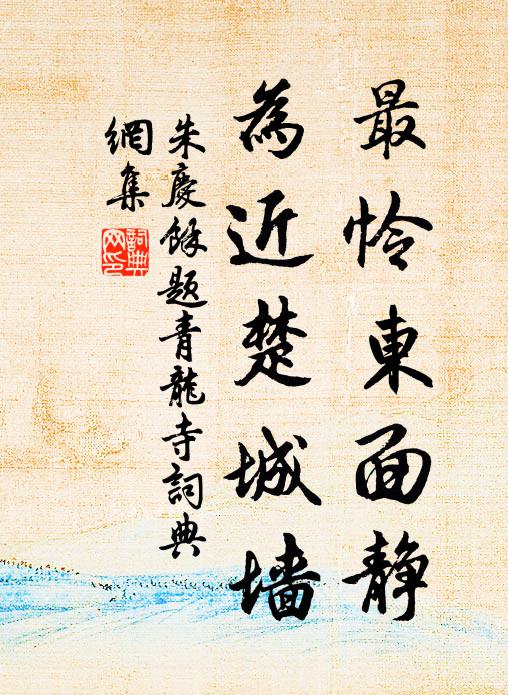 最怜東面静
為近楚城墙
朱慶餘題青龍寺詞典
網集
詞典網印